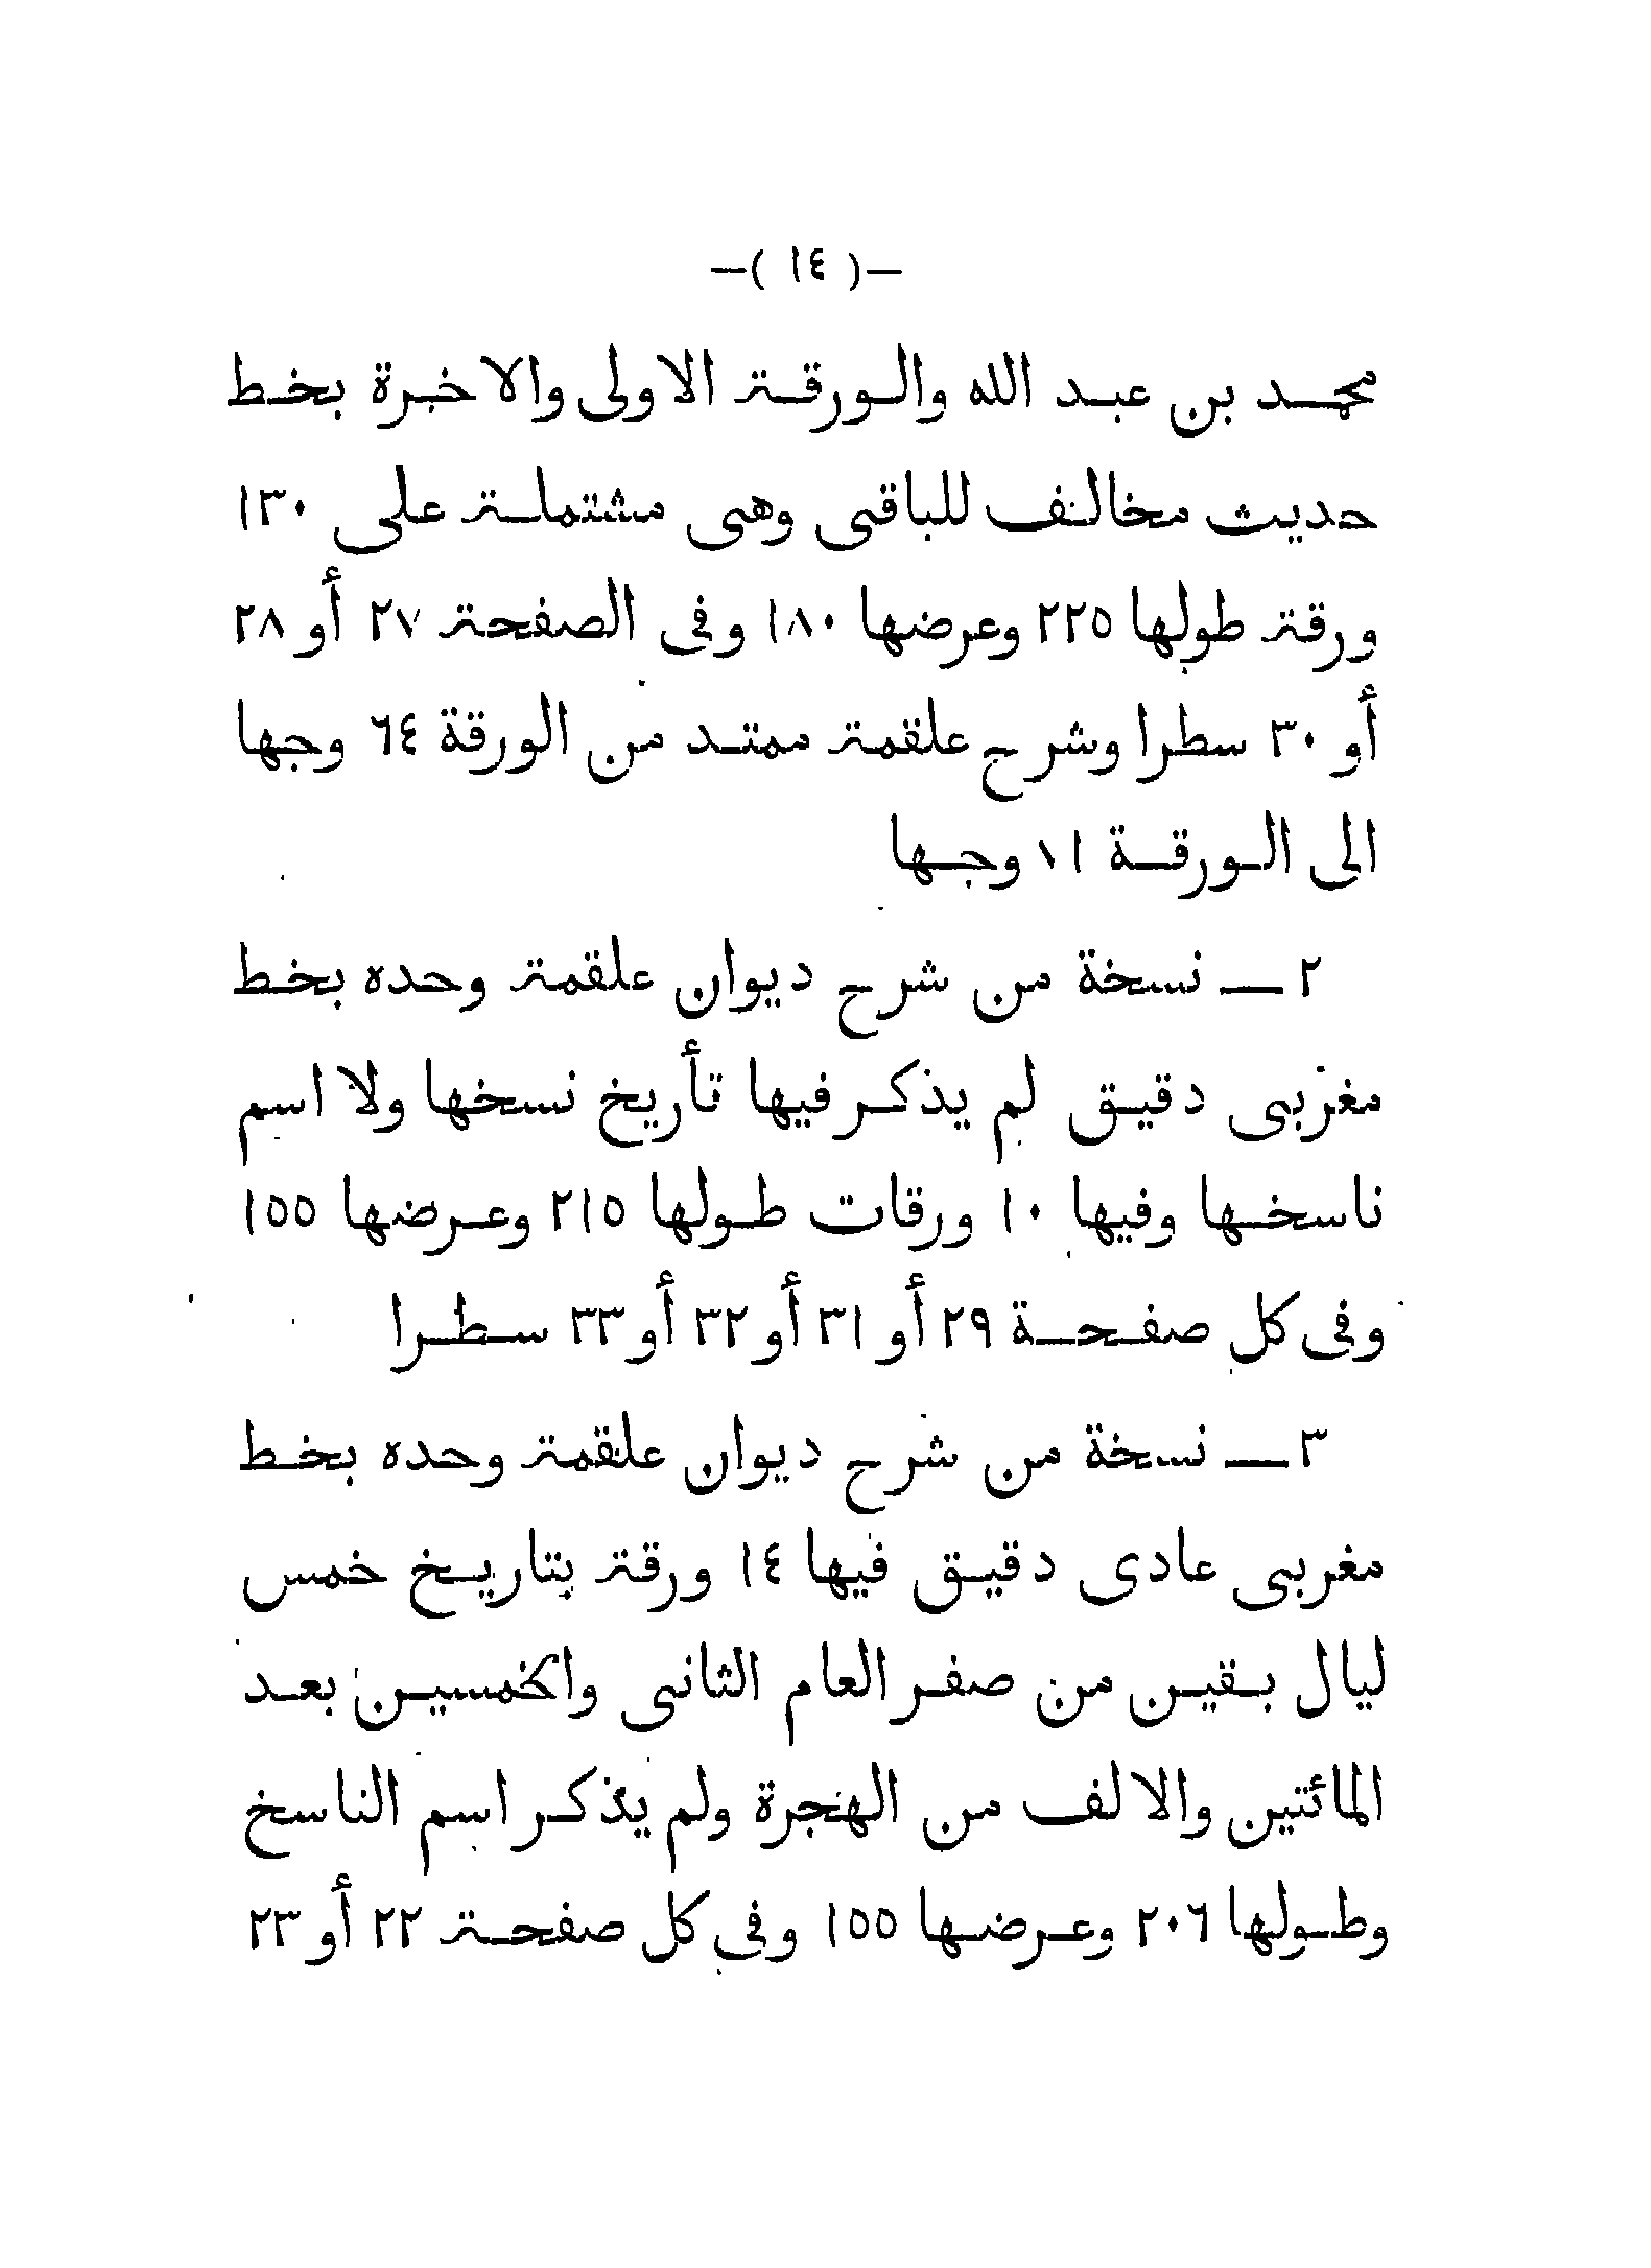 —( ١٤ )—
محمد بن عبد الله والورقة الاولى والاخيرة بخط
حديث مخالف للباقى وهى مشتملة على ١٣٠
ورقة طولها ٢٢٥ وعرضها ١٨٠ وفى الصفحة ٢٧ أو ٢٨
أو ٣٠ سطرا وشرح علقمة ممتد من الورقة ٦٤ وجها
الى الورقة وجها
٢ — نسخة من شرح ديوان علقمة وحده بخط
مغربى دقيق لم يذكر فيها تأريخ نسخها ولا اسم
ناسخها وفيها ١٠ ورقات طولها ٢١٥ وعرضها ١٥٥
وفى كل صفحة ٢٩ أو ٣١ أو ٣٢ أو ٣٣ سطرا
٣ — نسخة من شرح ديوان علقمة وحده بخط
مغربى عادى دقيق فيها ١٤ ورقة بتاريخ خمس
ليال بقين من صفر العام الثانى والخمسين بعد
المائتين والالف من الهجرة ولم يذكر اسم الناسخ
وطولها ٢٠٦ وعرضها ١٥٥ وفى كل صفحة ٢٢ أو ٢٣